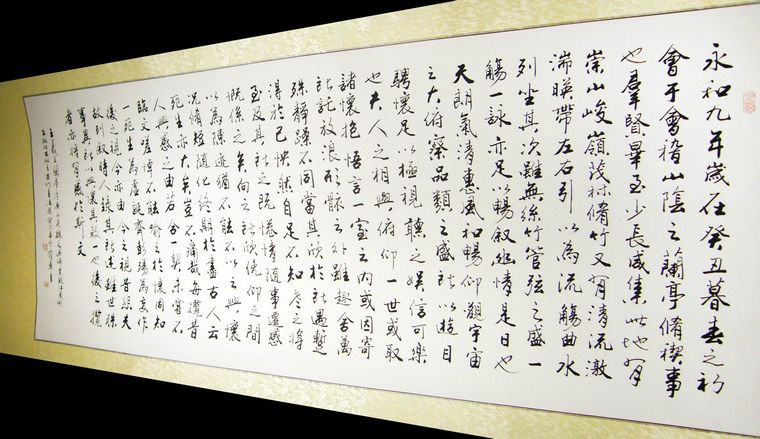 永和九年歲在癸丑暮春之初
會于會稽山陰之蘭亭脩禊事
也羣賢畢至少長咸集此地有
崇山峻嶺茂林脩竹又有清流激
湍暎帶左右引以為流觴曲水
列坐其次雖無絲竹管弦之盛一
觴一詠亦足以暢敘幽情是日也
天朗氣清惠風和暢仰觀宇宙
之大俯察品類之盛所以遊目
騁懷足以極視聽之娛信可樂
也夫人之相與俯仰一世或取
諸懷抱悟言一室之內或因寄
所託放浪形骸之外雖趣舍萬
殊靜躁不同當其欣於所遇蹔
得於己怏然自足不知老之將
至及其所之既惓情隨事遷感
慨係之矣向之所欣俛仰之間
以為陳迹猶不能不以之興懷
況脩短隨化終期於盡古人云
死生亦大矣豈不痛哉每攬昔
人興感之由若合一契未嘗不
臨文嗟悼不能喻之於懷固知
一死生為虛誕齊彭殤為妄作
後之視今亦由今之視昔悲夫
故列敘時人錄其所述雖世殊
事異所以興懷其致一也後之攬
者亦將有感於斯文